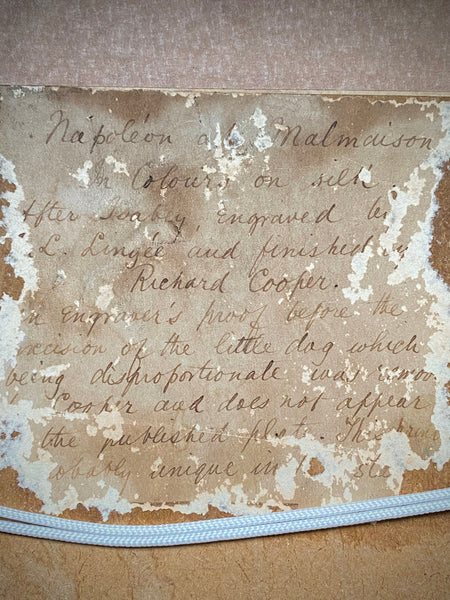 Napoléon at Malmaison
In Colours on silk.
After Isabey, engraved by
L. Lingée and finished by
Richard Cooper.
Engraver's proof before the
excision of the little dog which
being disproportionate was remov
Cooper and does not appear
the published plate. This
obably unique in